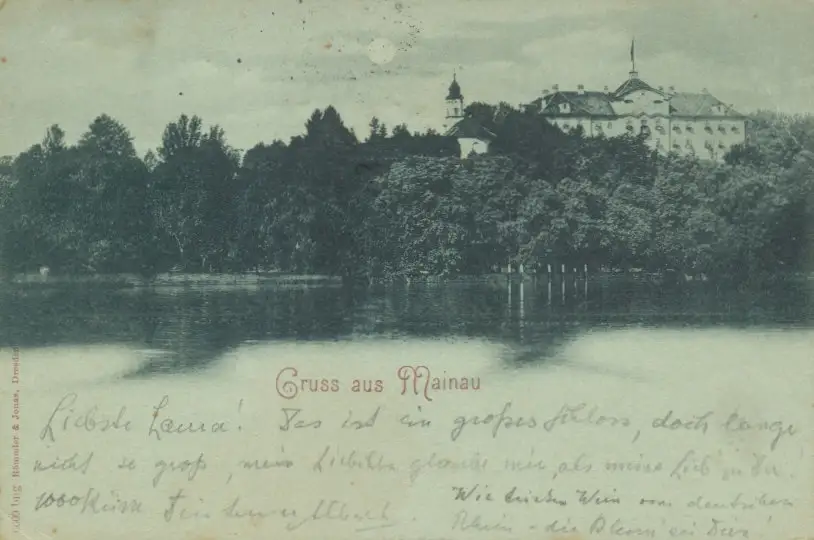 Gruss aus Mainau
Liebste Laura! Das ist ein großes Schloss, doch lange
nicht so groß, mein Liebchen glaube mir, als meine Lieb zu Dir!
1000 Küsse Dein
Wir trinken Wein vom deutschen
Rhein - die Blume sei Dein!
Römmler & Jonas, Dresden